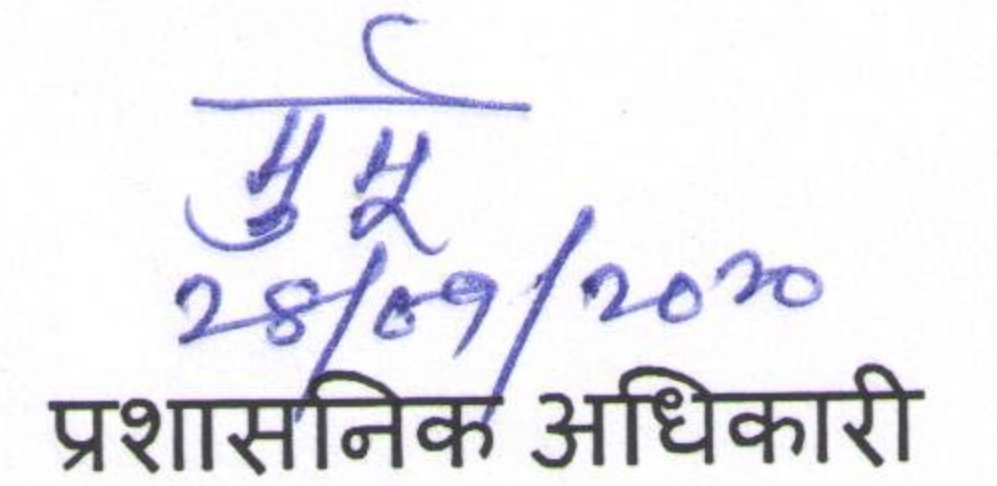 मुर्मू
28/09/2020
प्रशासनिक अधिकारी